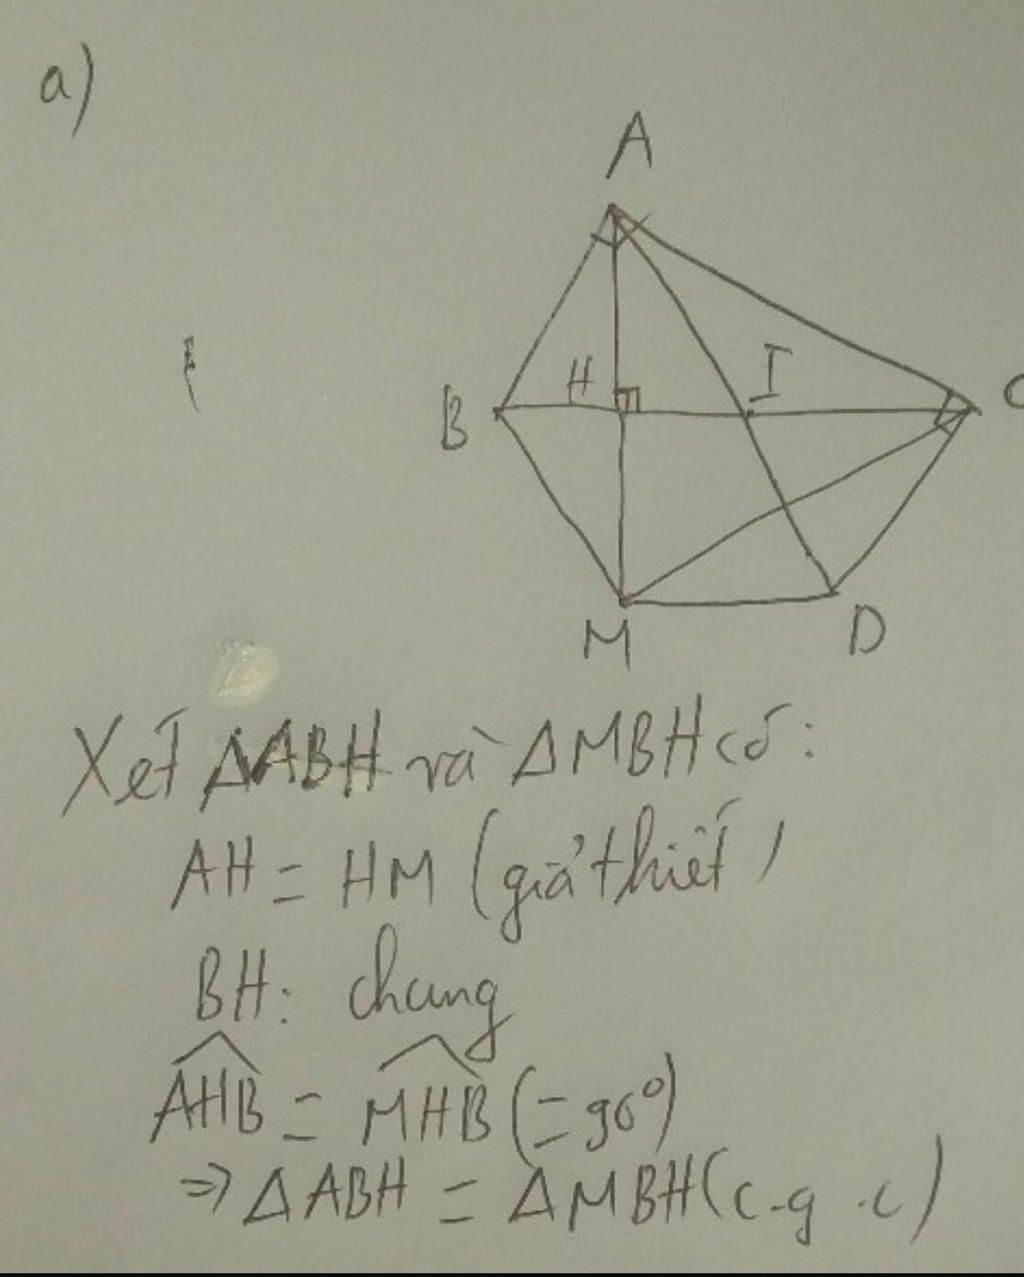 a)
A
H
I
B
C
M
D
Xét ΔABH và ΔMBH có:
AH = HM (giả thiết)
BH: chung
\widehat{AHB} = \widehat{MHB} (= 90°)
⇒ ΔABH = ΔMBH (c.g.c)